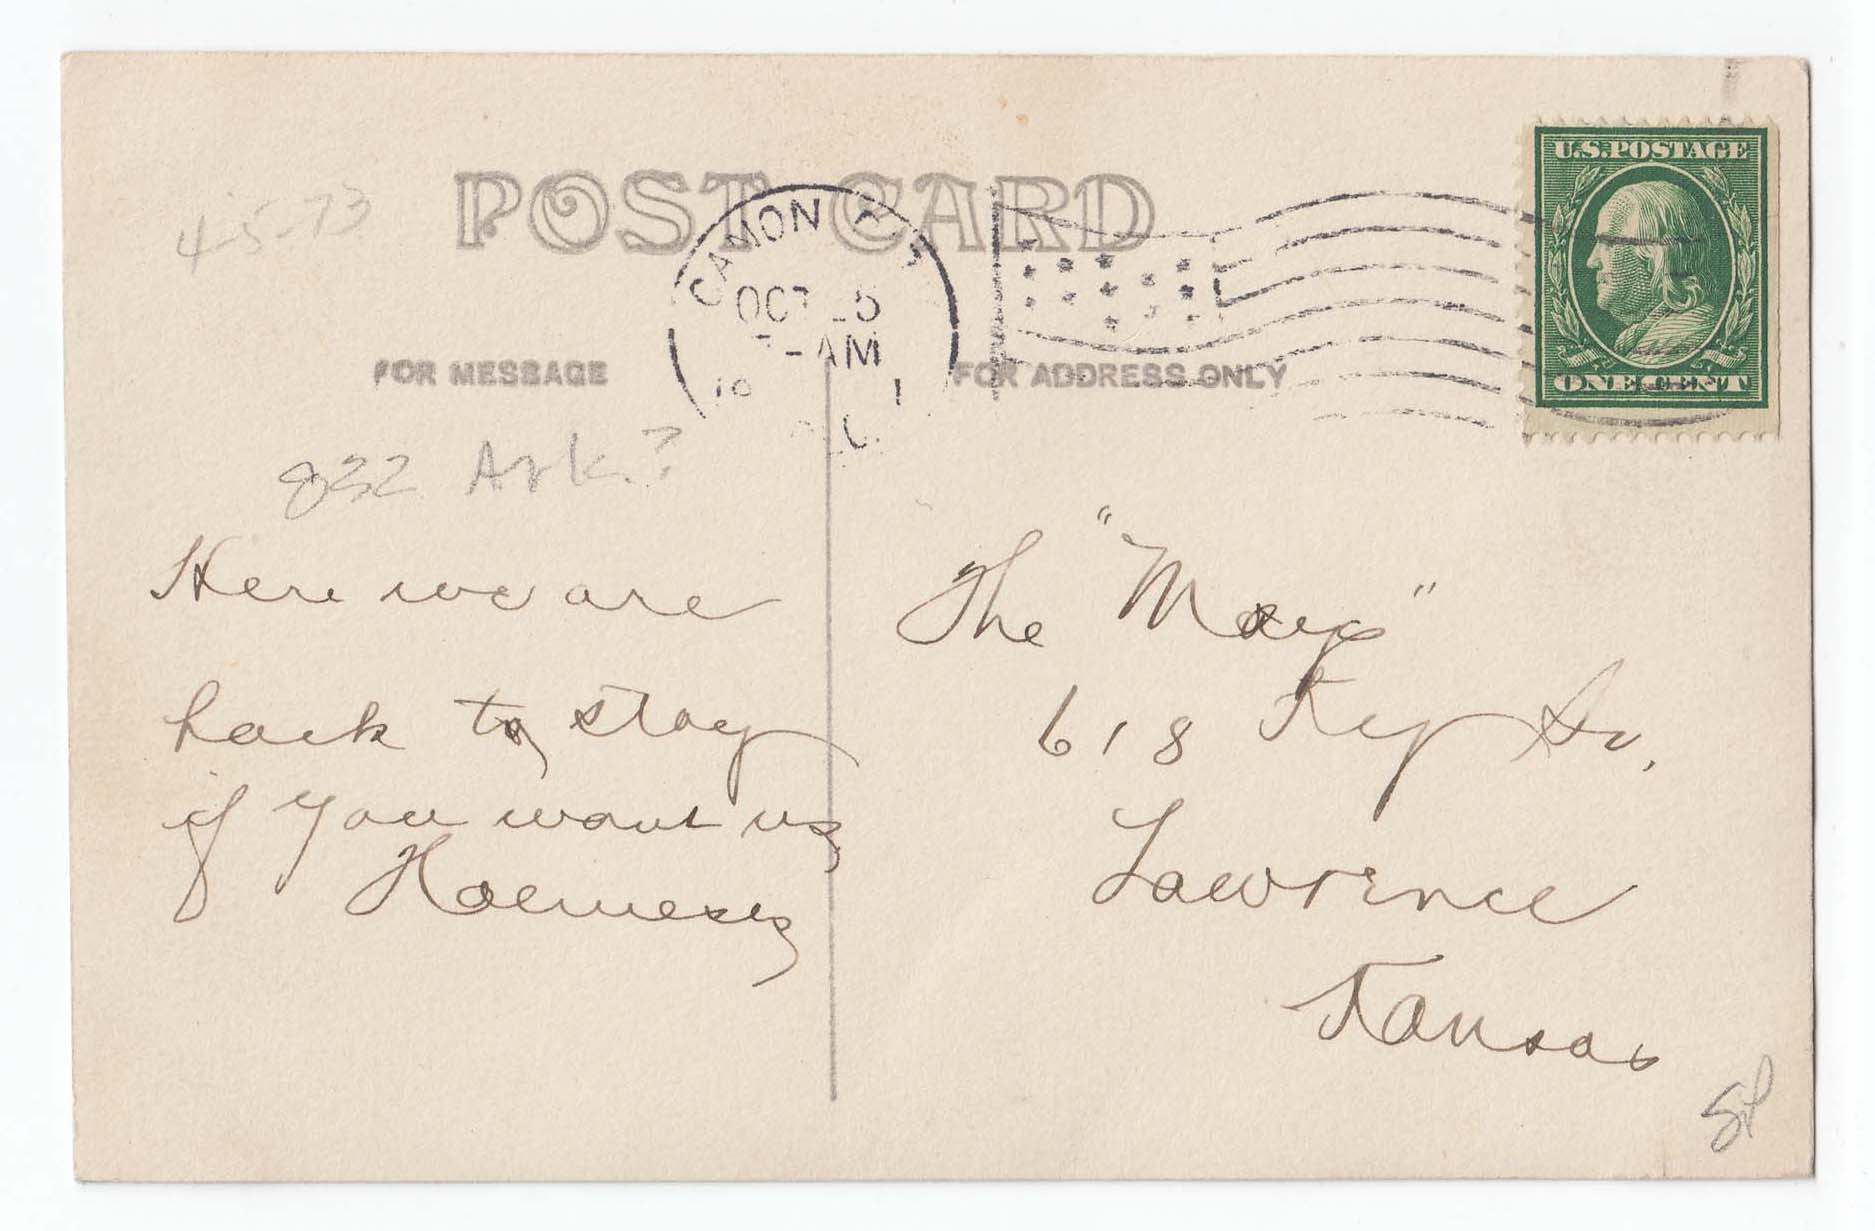 4-5-73
POST CARD
CAMON CIT
OCT 25
-AM
FOR MESSAGE
FOR ADDRESS ONLY
U.S.POSTAGE
ONE CENT
822 Ark?
Here we are
back to stay
if you want us
The "Mays"
618 Ky St,
Lawrence
Kansas